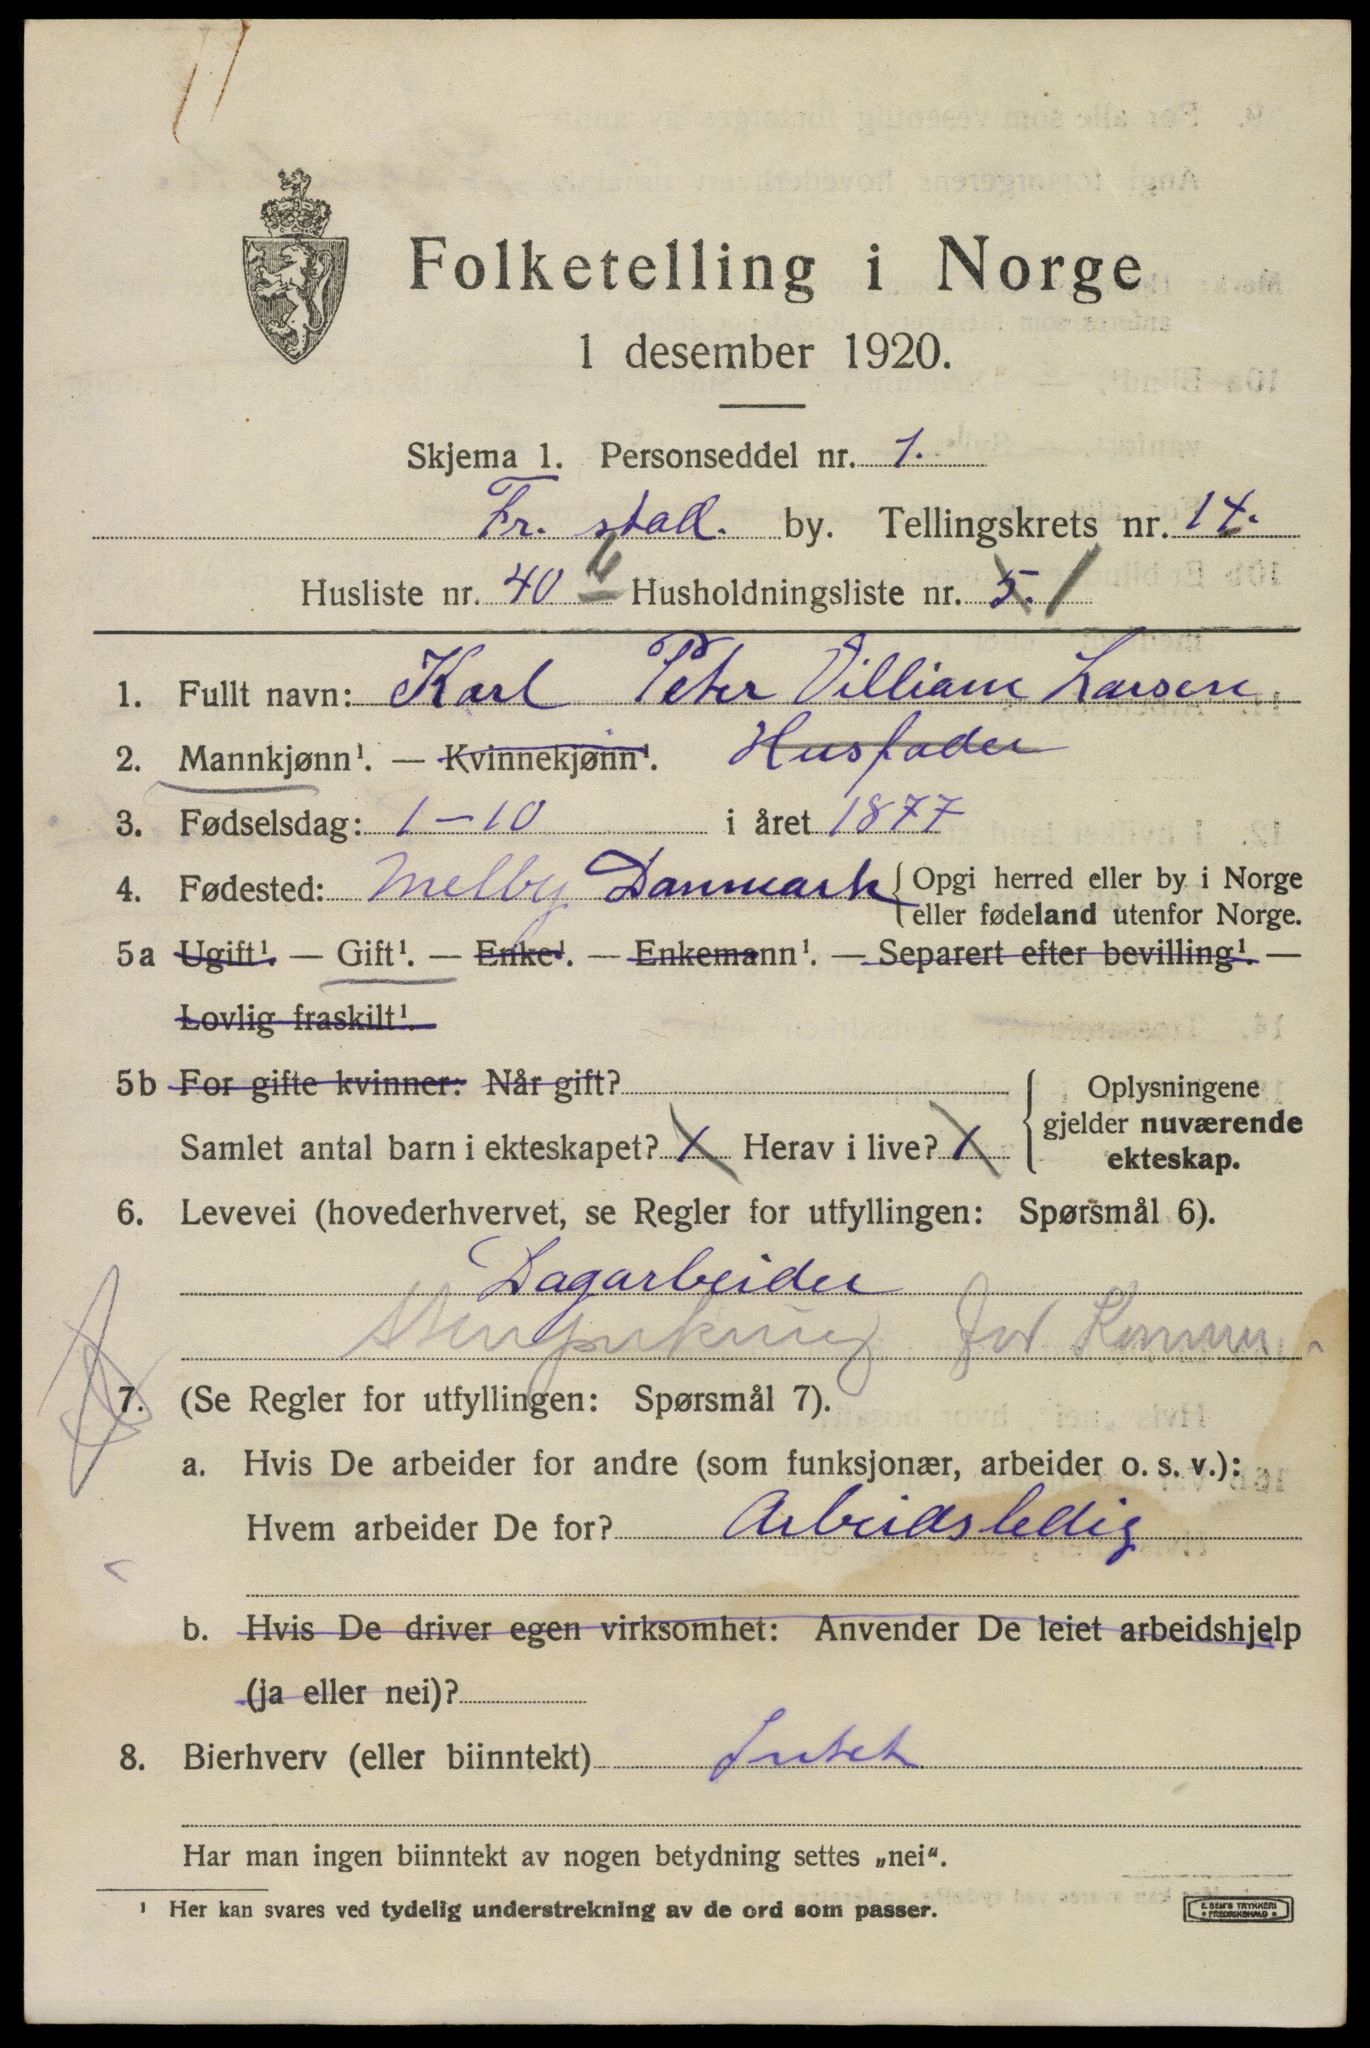 Folketelling i Norge
1 desember 1920.
Skjema 1. Personseddel nr. 1.
Fr.stad. by. Tellingskrets nr. 14.
Husliste nr. 40 b Husholdningsliste nr. 5. 1
1. Fullt navn: Karl Peter Villiam Larsen
2. Mannkjønn¹. — Kvinnekjønn¹. Husfader
3. Fødselsdag: 1-10 i året 1877
4. Fødested: Melby Danmark {Opgi herred eller by i Norge
eller fødeland utenfor Norge.
5a Ugift¹. — Gift¹. — Enke¹. — Enkemann¹. — Separert efter bevilling¹. —
Lovlig fraskilt¹.
5b For gifte kvinner: Når gift?
Samlet antal barn i ekteskapet? 1 Herav i live? 1
Oplysningene
gjelder nuværende
ekteskap.
6. Levevei (hovederhvervet, se Regler for utfyllingen: Spørsmål 6).
Dagarbeider
for Kommun
7. (Se Regler for utfyllingen: Spørsmål 7).
a. Hvis De arbeider for andre (som funksjonær, arbeider o. s. v.):
Hvem arbeider De for? Arbeidsledig
b. Hvis De driver egen virksomhet: Anvender De leiet arbeidshjelp
(ja eller nei)?
8. Bierhverv (eller biinntekt) Intet
Har man ingen biinntekt av nogen betydning settes „nei“.
¹ Her kan svares ved tydelig understrekning av de ord som passer.
E. SEM'S TRYKKERI
FREDRIKSHALD